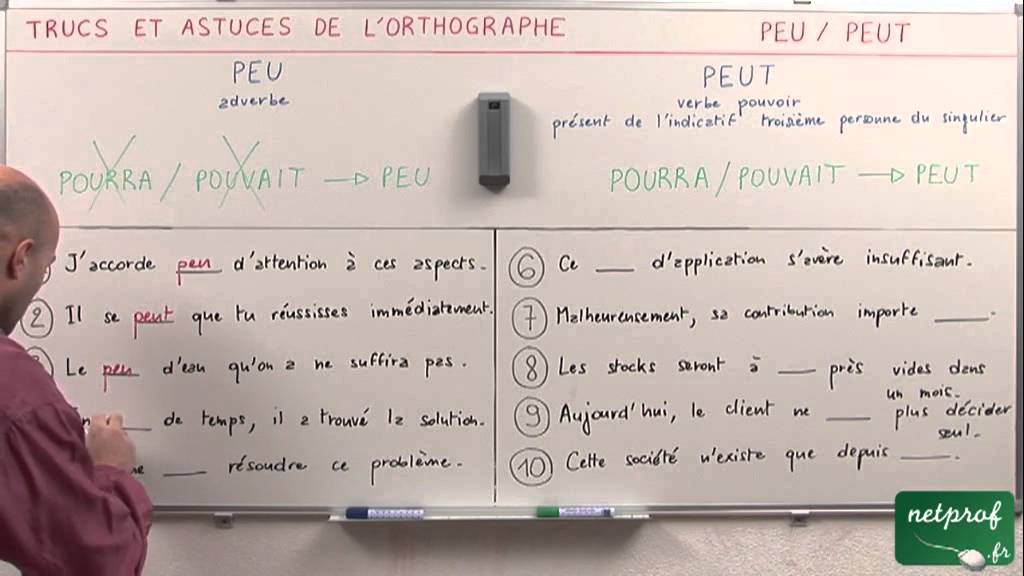 TRUCS ET ASTUCES DE L'ORTHOGRAPHE
PEU / PEUT
PEU
adverbe
POURRA / POUVAIT → PEU
PEUT
verbe pouvoir
présent de l'indicatif troisième personne du singulier
POURRA / POUVAIT → PEUT
J'accorde peu d'attention à ces aspects.
2 Il se peut que tu réussisses immédiatement.
Le peu d'eau qu'on a ne suffira pas.
___ de temps, il a trouvé la solution.
___ résoudre ce problème.
6 Ce ___ d'application s'avère insuffisant.
7 Malheureusement, sa contribution importe ___.
8 Les stocks seront à ___ près vides dans
un mois.
9 Aujourd'hui, le client ne ___ plus décider
seul.
10 Cette société n'existe que depuis ___.
netprof
.fr